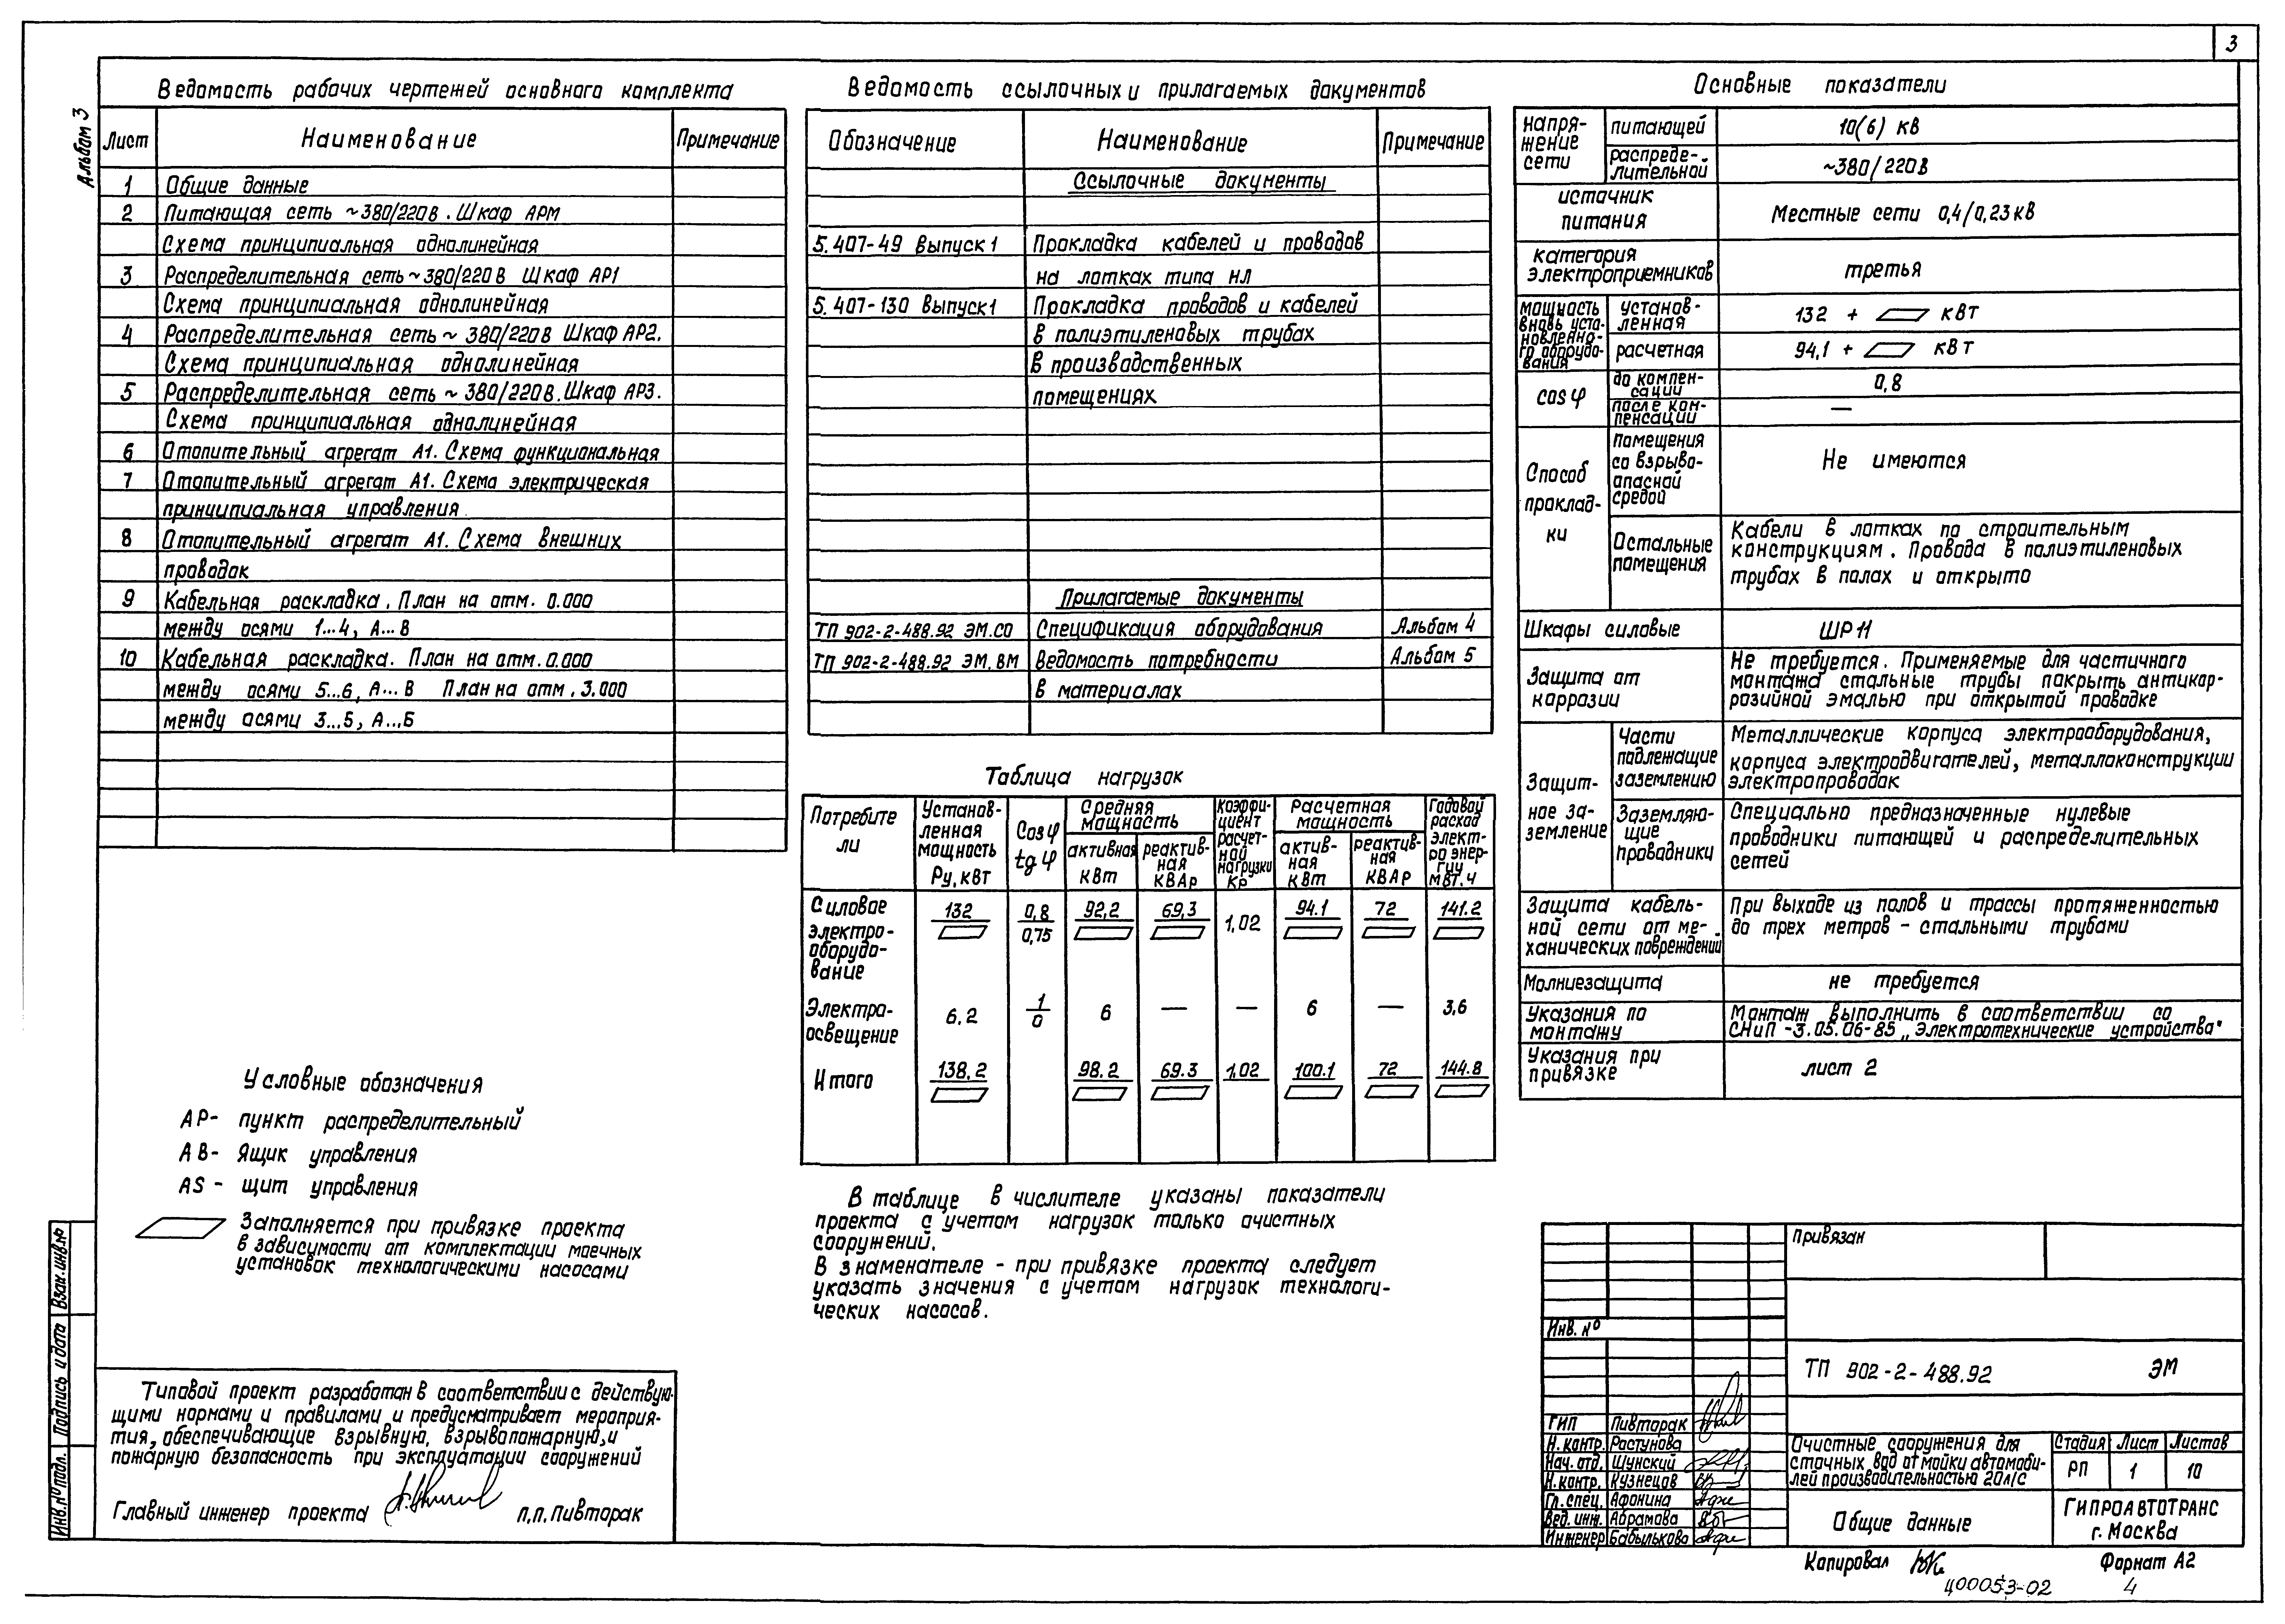 3
Альбом 3
Ведомость рабочих чертежей основного комплекта
Лист Наименование Примечание
1 Общие данные
2 Питающая сеть ~380/220в. Шкаф АРМ
Схема принципиальная однолинейная
3 Распределительная сеть ~380/220в Шкаф АР1
Схема принципиальная однолинейная
4 Распределительная сеть ~ 380/220в Шкаф АР2.
Схема принципиальная однолинейная
5 Распределительная сеть ~ 380/220в. Шкаф АР3.
Схема принципиальная однолинейная
6 Отопительный агрегат А1. Схема функциональная
7 Отопительный агрегат А1. Схема электрическая
принципиальная управления
8 Отопительный агрегат А1. Схема внешних
проводок
9 Кабельная раскладка. План на отм. 0.000
между осями 1...4, А...В
10 Кабельная раскладка. План на отм. 0.000
между осями 5...6, А...В План на отм. 3.000
между осями 3...5, А...Б
Условные обозначения
АР- пункт распределительный
АВ- Ящик управления
AS - щит управления
Заполняется при привязке проекта
в зависимости от комплектации моечных
установок технологическими насосами
Типовой проект разработан в соответствии с действую-
щими нормами и правилами и предусматривает мероприя-
тия, обеспечивающие взрывную, взрывопожарную, и
пожарную безопасность при эксплуатации сооружений
Главный инженер проекта п.п. Пивторак
Взам. инв. №
Подпись и дата
Инв. № подл.
Ведомость ссылочных и прилагаемых документов
Обозначение Наименование Примечание
Ссылочные документы
5.407-49 Выпуск 1 Прокладка кабелей и проводов
на лотках типа НЛ
5.407-130 Выпуск 1 Прокладка проводов и кабелей
в полиэтиленовых трубах
в производственных
помещениях
Прилагаемые документы
ТП 902-2-488.92 ЭМ.СО Спецификация оборудования Альбом 4
ТП 902-2-488.92 ЭМ.ВМ Ведомость потребности Альбом 5
в материалах
Таблица нагрузок
Потребите
ли
Установ-
ленная
мощность
Ру, кВт
Cos φ
tg φ
Средняя
мощность
активная
кВт
реактив-
ная
КВАр
Коэффи-
циент
расчет-
ной
нагрузки
Кр
Расчетная
мощность
актив-
ная
кВт
реактив-
ная
КВАр
Годовой
расход
элект-
ро энер-
гии
МВт.ч
Силовое
электро-
оборудо-
вание
132 0,8 92,2 69,3 1,02 94.1 72 141.2
0,75
Электро-
освещение
6.2 1 6 — — 6 — 3,6
0
Итого 138,2 98.2 69.3 1,02 100.1 72 144.8
В таблице в числителе указаны показатели
проекта с учетом нагрузок только очистных
сооружений.
В знаменателе - при привязке проекта следует
указать значения с учетом нагрузок технологи-
ческих насосов.
Основные показатели
Напря-
жение
сети
питающей 10(6) кв
распреде-
лительной ~380/220в
источник
питания Местные сети 0,4/0,23кв
категория
электроприемников третья
мощность
вновь уста-
новленно-
го оборудо-
вания
установ-
ленная 132 + квт
расчетная 94,1 + квт
cos φ
до компен-
сации 0,8
после ком-
пенсации —
Способ
проклад-
ки
помещения
со взрыво-
опасной
средой
Не имеются
Остальные
помещения
Кабели в лотках по строительным
конструкциям. Провода в полиэтиленовых
трубах в полах и открыто
Шкафы силовые ШР 11
Защита от
коррозии
Не требуется. Применяемые для частичного
монтажа стальные трубы покрыть антикор-
розийной эмалью при открытой проводке
Защит-
ное за-
земление
Части
подлежащие
заземлению
Металлические корпуса электрооборудования,
корпуса электродвигателей, металлоконструкции
электропроводок
Заземляю-
щие
проводники
Специально предназначенные нулевые
проводники питающей и распределительных
сетей
Защита кабель-
ной сети от ме-
ханических повреждений
При выходе из полов и трассы протяженностью
до трех метров - стальными трубами
Молниезащита не требуется
Указания по
монтажу
Монтаж выполнить в соответствии со
СНиП -3.05.06-85 „Электротехнические устройства"
Указания при
привязке лист 2
Привязан
Инв. №
ТП 902-2-488.92 ЭМ
ГИП Пивторак
Н.контр. Растунова
Нач. отд. Шунский
Н.контр. Кузнецов
Гл. спец. Афонина
Вед. инж. Абрамова
Инженер Бабылькова
Очистные сооружения для
сточных вод от мойки автомоби-
лей производительностью 20л/с
Стадия Лист Листов
РП 1 10
Общие данные
ГИПРОАВТОТРАНС
г. Москва
Копировал
Формат А2
400053-02 4